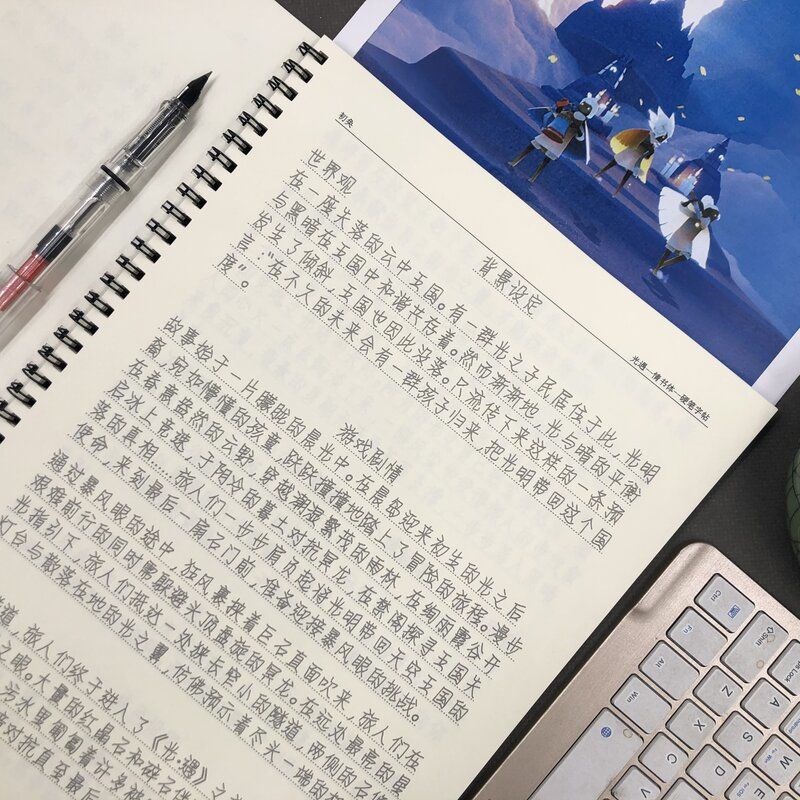 初
光遇—情书体—硬笔字帖
背景设定
世界观
在一座失落的云中王国。有一群光之子民居住于此,光明
与黑暗在王国中和谐共存着。然而渐渐地,光与暗的平衡
发生了倾斜,王国也因此没落。只流传下来这样的一条预
言:“在不久的未来会有一群孩子归来,把光明带回这个国
度”。
游戏剧情
故事始于一片朦胧的晨光中。在晨岛迎来初生的光之后
裔,宛如懵懂的孩童,跌跌撞撞地踏上了冒险的旅程。漫步
在春意盎然的云野,穿越潮湿繁茂的雨林,在绚丽霞谷开
启冰上竞速,于阴冷的暮土对抗冥龙,在禁阁探寻王国失
落的真相...旅人们一步步肩负起将光明带回天空王国的
使命,来到最后一扇石门前,准备迎接暴风眼的挑战。
通过暴风眼的途中,狂风裹挟着巨石直面吹来,旅人们在
艰难前行的同时需躲避头顶盘旋的冥龙。在远处最亮的
光指引下,旅人们抵达一处狭长窄小的隧道,两侧的石像
灯台与散落在地的光之翼,仿佛预示着尽头一端的
道,旅人们终于进入了《光·遇》之
之眼。大量的红晶石和碎石伴
污水里匍匐着许多
对抗直至最后
Ctrl
Fn
Shift
Alt
Win
Z
X
A
S
W